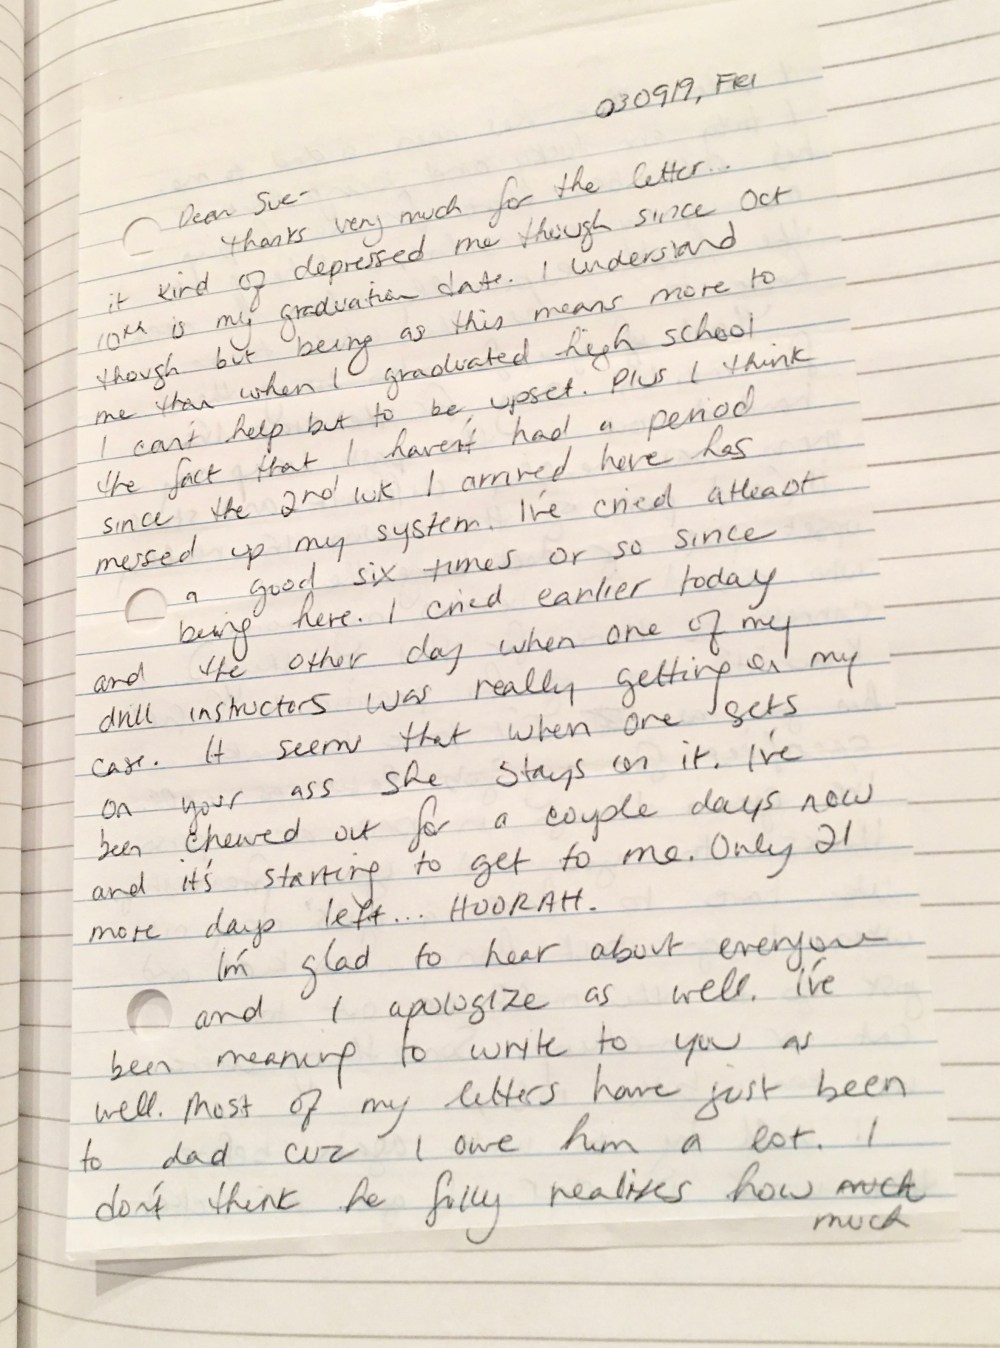 030919, FRI
Dear Sue-
thanks very much for the letter...
it kind of depressed me though since Oct
10th is my graduation date. I understand
though but being as this means more to
me than when I graduated high school
I can't help but to be upset. Plus I think
the fact that I haven't had a period
since the 2nd wk I arrived here has
messed up my system. I've cried atleast
a good six times or so since
being here. I cried earlier today
and the other day when one of my
drill instructors was really getting on my
case. It seems that when one gets
on your ass she stays on it. I've
been chewed out for a couple days now
and it's starting to get to me. Only 21
more days left... HOORAH.
I'm glad to hear about everyone
and I apologize as well. I've
been meaning to write to you as
well. Most of my letters have just been
to dad cuz I owe him a lot. I
don't think he fully realizes how much
much